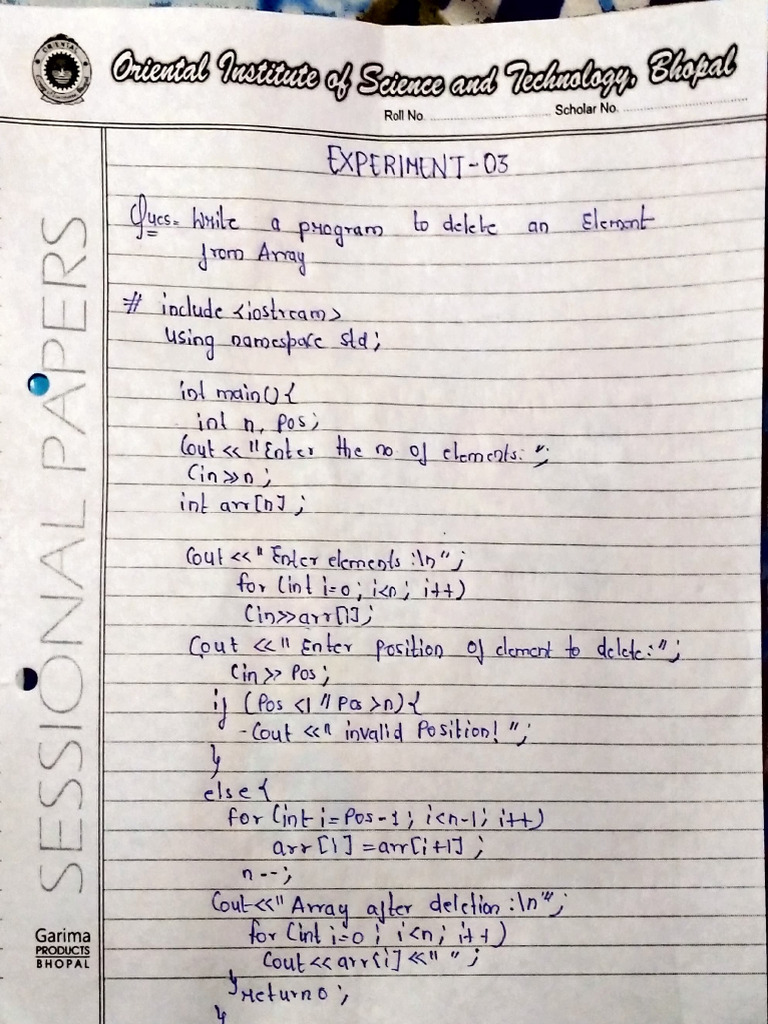 ORIENTAL
Oriental Institute of Science and Technology, Bhopal
Roll No. .................... Scholar No. ....................
EXPERIMENT-03
Ques= Write a program to delete an Element
from Array
# include <iostream>
Using namespace std;
int main() {
int n, pos;
Cout << "Enter the no of elements: ";
Cin >> n;
int arr[n];
Cout << "Enter elements :\n";
for (int i=0; i<n; i++)
Cin>>arr[i];
Cout << " Enter position of element to delete:";
Cin >> Pos;
if (Pos <1 || Pos >n) {
Cout <<" invalid Position! ";
}
else {
for (int i=Pos-1; i<n-1; i++)
arr [i] = arr[i+1];
n--;
Cout<<" Array after deletion :\n";
for (int i=0; i<n; i++)
Cout << arr[i] <<" ";
} return 0;
}
SESSIONAL PAPERS
Garima
PRODUCTS
BHOPAL